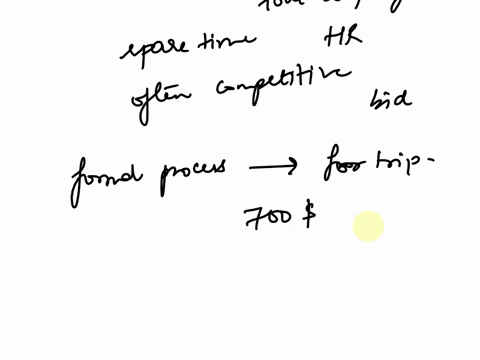 spare time HR
often competitive
bid
formal process → for trip -
700 $